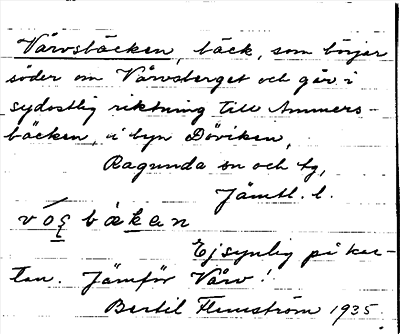 Vårvsbäcken, bäck, som börjar
söder om Vårvsberget och går i
sydostlig riktning till Ammers-
bäcken, i byn Döviken,
Ragunda sn och tg,
Jämtl. l.
bäkan
Ej synlig på kar-
tan. Jämför Vårv!
Bertil Flemström 1935.